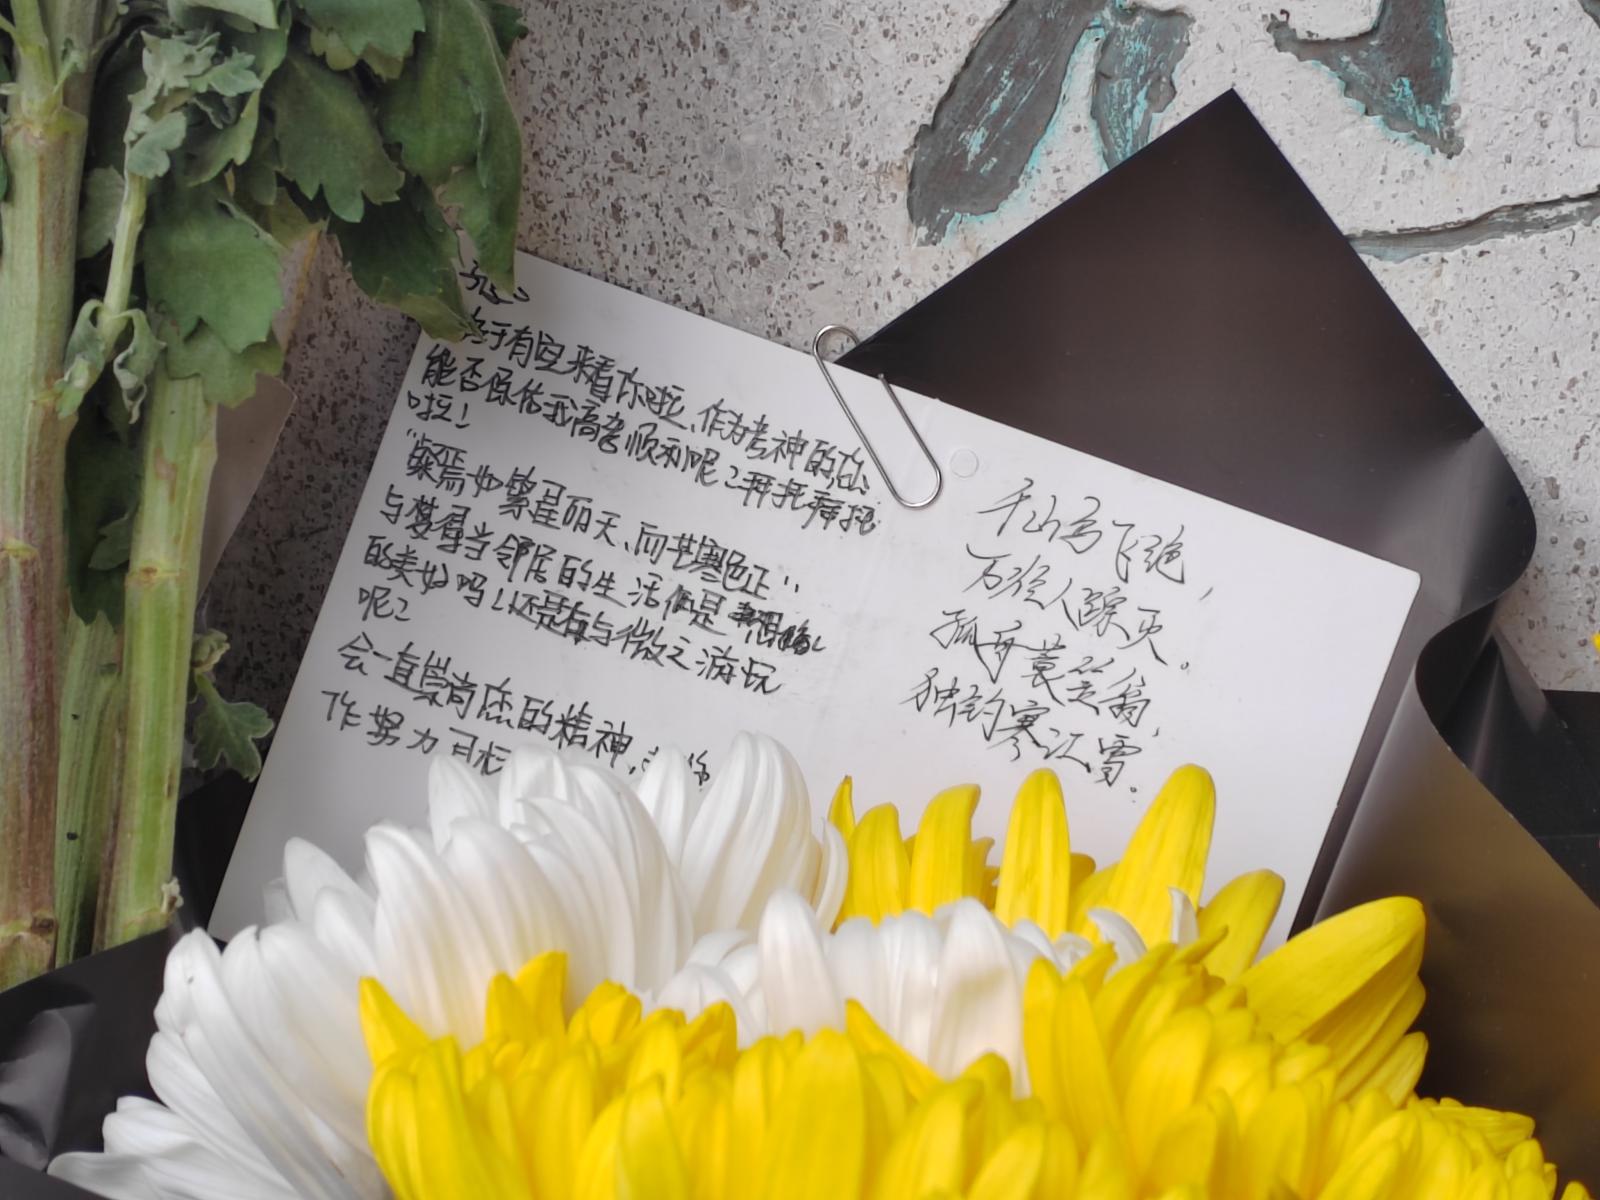 终于有空来看你啦、作为考神的您
能否保佑我高考顺利呢？拜托拜托
啦！
“粲焉如繁星丽天、而芒寒色正”
与梦得当邻居的生活便是
的美妙吗！还是与微之游玩
呢？
会一直崇尚您的精神，
作努力目标
千山鸟飞绝，
万径人踪灭。
孤舟蓑笠翁，
独钓寒江雪。